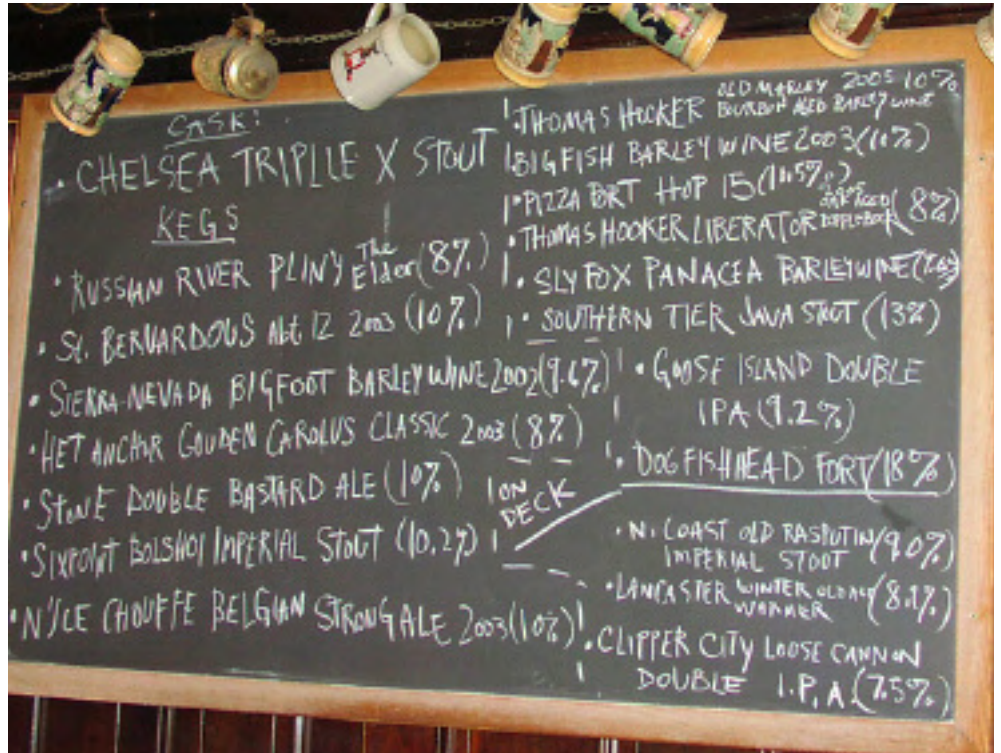 CASK:
• CHELSEA TRIPLLE X STOUT
KEGS
• RUSSIAN RIVER PLINY The Elder (8%)
• St. BERNARDOUS Abt 12 2003 (10%)
• SIERRA-NEVADA BIGFOOT BARLEYWINE 2002 (9.6%)
• HET ANCHOR GOUDEN CAROLUS CLASSIC 2003 (8%)
• STONE DOUBLE BASTARD ALE (10%)
• SIXPOINT BOLSHOI IMPERIAL STOUT (10.2%)
• N'ICE CHOUFFE BELGIAN STRONG ALE 2003 (10%)
• THOMAS HOOKER OLD MARLEY 2005 10%
BOURBON AGED BARLEY WINE
• BIGFISH BARLEY WINE 2003 (10%)
• PIZZA PORT HOP 15 (10.5%)
• THOMAS HOOKER LIBERATOR (8%)
• SLY FOX PANACEA BARLEYWINE
• SOUTHERN TIER JAVA STOUT (13%)
• GOOSE ISLAND DOUBLE
IPA (9.2%)
• DOGFISHHEAD FORT (18%)
ON
DECK
• N. COAST OLD RASPUTIN (9.0%)
IMPERIAL STOOT
• LANCASTER WINTER OLD ALE (8.1%)
WARMER
• CLIPPER CITY LOOSE CANNON
DOUBLE I.P.A (7.5%)